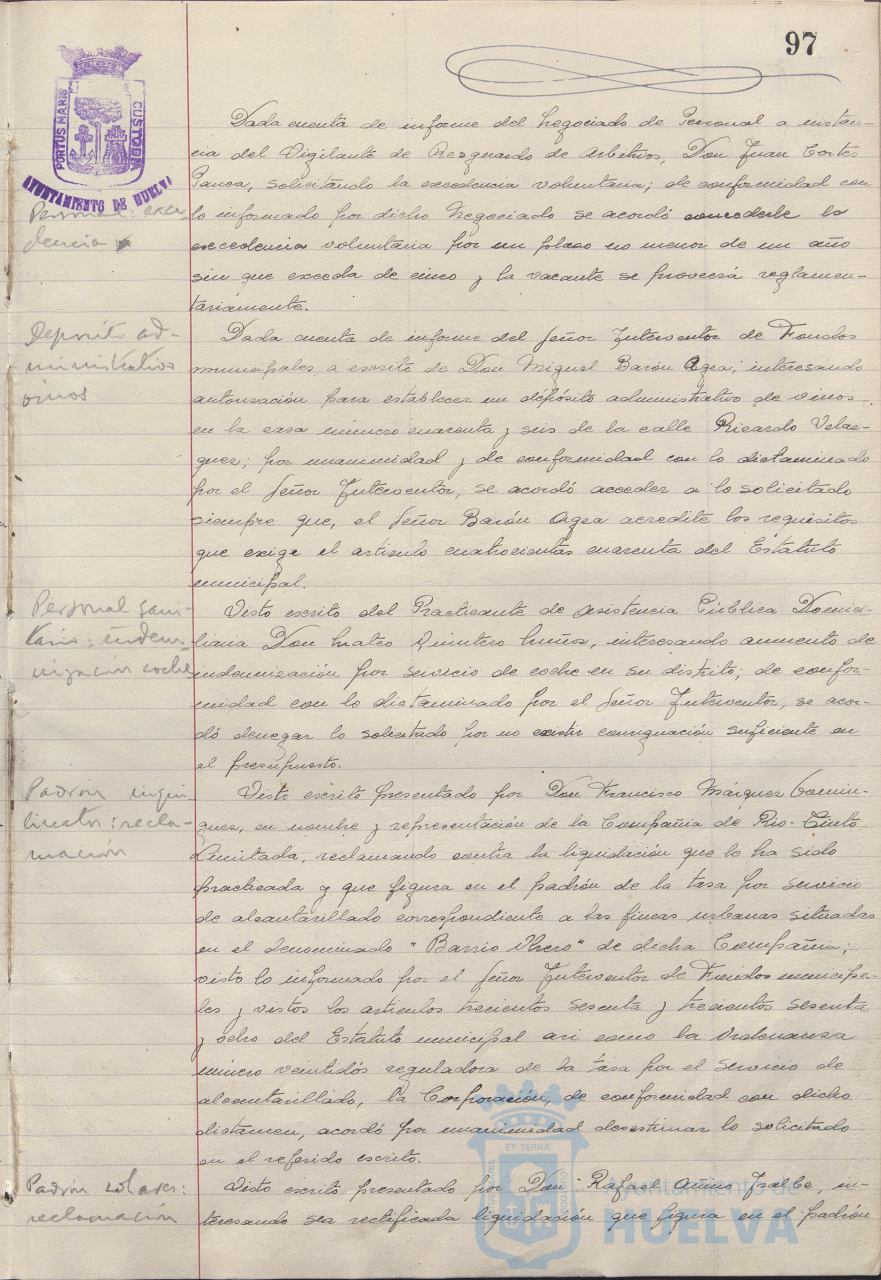 97
PORTUS MARIS CUSTODIA
AYUNTAMIENTO DE HUELVA
Dada cuenta de informe del Negociado de Personal a instan-
cia del Vigilante de Resguardo de Arbitrios, Don Juan Cortés
Ponca, solicitando la excedencia voluntaria; de conformidad con
Personal: exce-
lo informado por dicho Negociado se acordó concederle la
dencia
excedencia voluntaria por un plazo no menor de un año
sin que exceda de cinco y la vacante se proveerá reglamen-
tariamente.
Deposito ad-
Dada cuenta de informe del Señor Interventor de Fondos
ministrativo
municipales, a escrito de Don Miguel Barón Agea; interesando
vinos
autorización para establecer un depósito administrativo de vinos
en la casa número cuarenta y seis de la calle Ricardo Velaz-
quez; por unanimidad y de conformidad con lo dictaminado
por el Señor Interventor, se acordó acceder a lo solicitado
siempre que, el Señor Barón Agea acredite los requisitos
que exige el artículo cuatrocientos cuarenta del Estatuto
municipal.
Personal Sani-
Visto escrito del Practicante de Asistencia Pública Domici-
tario: indem-
liaria Don Mateo Quintero, interesando aumento de
nización coche
indemnización por servicio de coche en su distrito; de confor-
midad con lo dictaminado por el Señor Interventor, se acor-
dó denegar lo solicitado por no existir consignación suficiente en
el presupuesto.
Padrón inqui
Visto escrito presentado por Don Francisco Márquez Gomin-
linatos: recla-
guez, en nombre y representación de la Compañia de Rio-Tinto
mación
Limitada, reclamando contra la liquidación que le ha sido
practicada y que figura en el padrón de la tasa por servicio
de alcantarillado correspondiente a las fincas urbanas situadas
en el denominado "Barrio Obrero" de dicha Compañia;
visto lo informado por el Señor Interventor de Fondos municipa-
les y vistos los articulos trecientos sesenta y trecientos sesenta
y ocho del Estatuto municipal asi como la Ordenanza
número veintidós reguladora de la tasa por el servicio de
alcantarillado, la Corporación, de conformidad con dicho
dictámen, acordó por unanimidad desestimar lo solicitado
en el referido escrito.
Padrón solares:
Visto escrito presentado por Don Rafael, in-
reclamación
teresando sea rectificada liquidación que figura en el padrón
ET TERRÆ
Ayuntamiento de
HUELVA